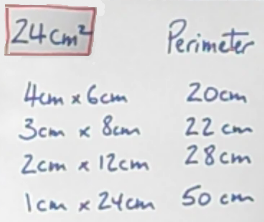 24cm² Perimeter
4cm x 6cm 20cm
3cm x 8cm 22cm
2cm x 12cm 28cm
1cm x 24cm 50 cm